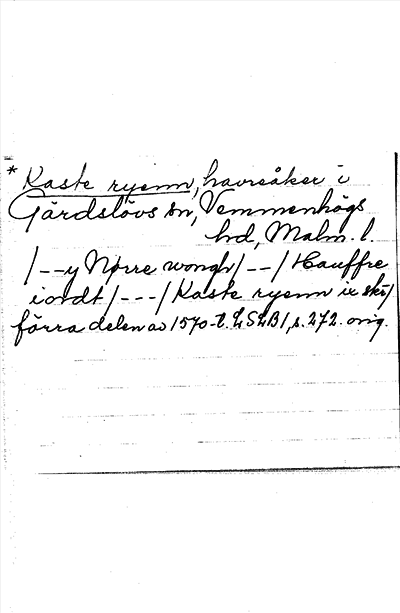 * Kaste ryenn, havreåker i
Gärdslövs sn, Vemmenhögs
hd, Malm. l.
/--y Nørre wongh/--/Hauffre
iordt/---/Kaste ryenn ix sk/
förra delen av 1570-t. LSLB1, s. 272. orig.